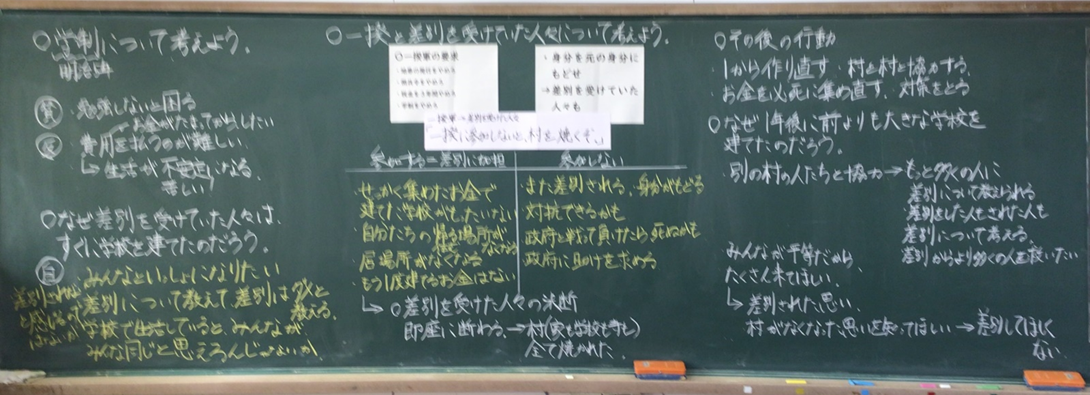 ○学制について考えよう。
明治5年
貧 ・勉強しないと困る
お金がたまってからしたい
・費用を払うのが難しい。
↳生活が不安定になる
苦しい
○なぜ差別を受けていた人々は、
すぐに学校を建てたのだろう。
自 みんなといっしょになりたい
差別について教えて差別はダメと
教える。
学校で生活していると、みんなが
みな同じと思えるんじゃないか。
○一揆と差別を受けていた人々について考えよう。
○一揆軍の要求
・学制をやめろ
・身分を元の身分に
もどせ
→差別を受けていた
人々も
一揆軍→差別を受けた人々
「一揆に参加しないと、村を焼くぞ。」
参加する=差別に加担
せっかく集めたお金で
建てた学校がもったいない
自分たちの帰る場所が
なくなる
居場所がなくなる
もう1度建てるお金はない
参加しない
また差別される、身分がもどる
対抗できるかも
政府と戦って負けたら死ぬかも
政府に助けを求める
↳○差別を受けた人々の決断
即座に断わる→村(家も学校も寺も)
全て焼かれた。
○その後の行動
・1から作り直す・村と村と協力する。
・お金を必死に集め直す・対策をとる
○なぜ1年後に前よりも大きな学校を
建てたのだろう。
別の村の人たちと協力→もっと多くの人に
差別について教えられる
差別をした人もされた人も
差別について考える。
差別からより多くの人を救いたい
みんなが平等だから
たくさん来てほしい。
↳差別された思い、
村がなくなった思いを知ってほしい→差別してほしく
ない。